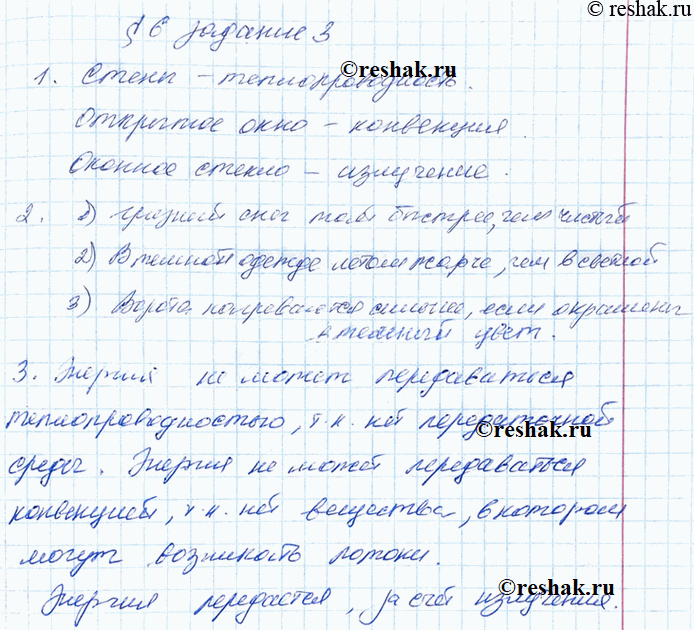 © reshak.ru
§ 6 задание 3
©reshak.ru
1. Стены – теплопроводность.
Открытое окно – конвекция.
Оконное стекло – излучение.
2. 1) Грязный снег тает быстрее, чем чистый
2) В темной одежде летом жарче, чем в светлой
3) Ворота нагреваются сильнее, если окрашены
в темный цвет.
3. Энергия не может передаваться
теплопроводностью, т.к. нет передаточной
©reshak.ru
среды. Энергия не может передаваться
конвекцией, т.к. нет вещества, в котором
могут возникать потоки.
©reshak.ru
Энергия передается, за счет излучения.